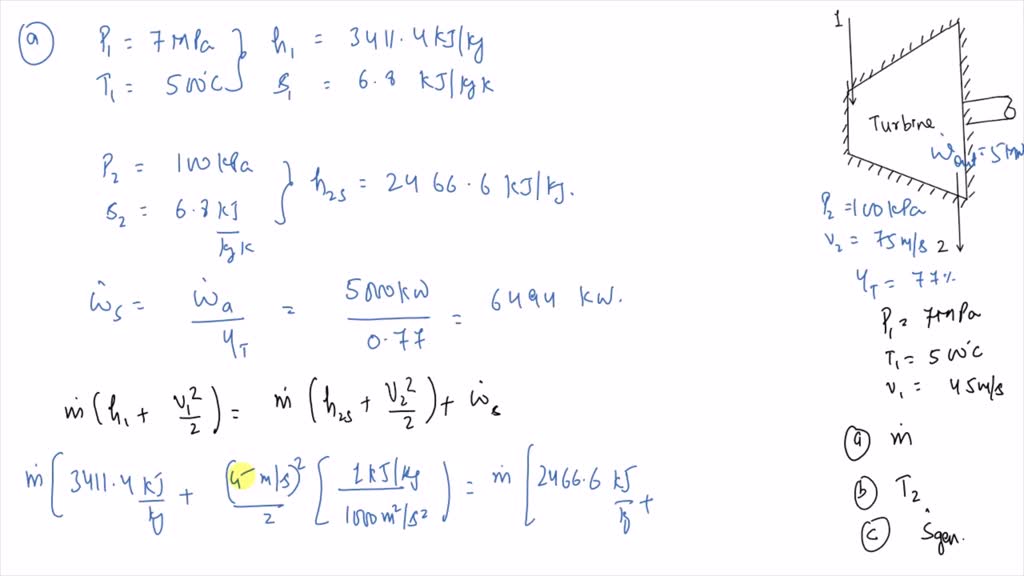 a
P₁ = 7MPa } h₁ = 3411.4 kJ/kg
T₁ = 500°C } s₁ = 6.8 kJ/kgK
P₂ = 100kPa } h₂s = 2466.6 kJ/kg.
s₂ = 6.8 kJ/kgK
ẇs = ẇa/ηT = 5000kW/0.77 = 6494 kW.
ṁ(h₁ + v₁²/2) = ṁ(h₂s + v₂²/2) + ẇs
ṁ[3411.4 kJ/kg + (4 m/s)²/2 [1 kJ/kg / 1000 m²/s²] ) = ṁ [2466.6 kJ/kg +
1
Turbine
ẇout = 5MW
P₂ = 100kPa
v₂ = 75m/s 2
ηT = 77%
P₁ = 7MPa
T₁ = 500°C
v₁ = 45m/s
a ṁ
b T₂
c Ṡgen.